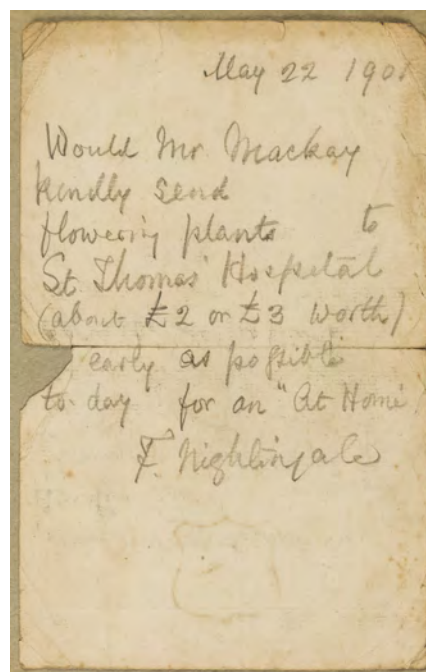 May 22 190
Would Mr Mackay
kindly send
flowering plants to
St Thomas' Hospital
(about £2 or £3 worth)
early as possible
to-day for an "At Home
F. Nightingale